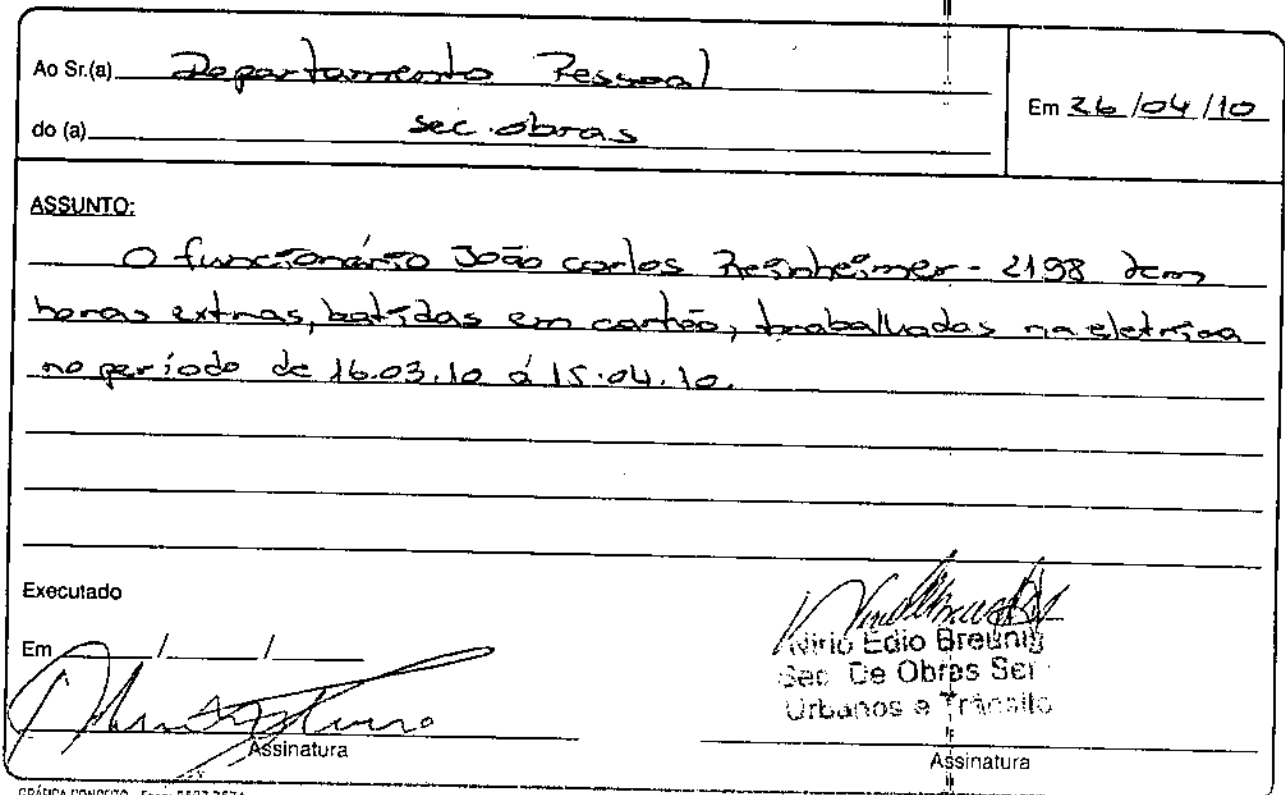 Ao Sr.(a) Departamento Pessoal
do (a) sec. obras
Em 26/04/10
ASSUNTO:
O funcionário João carlos Reinheimer - 2198 tem
horas extras, batidas em cartão, trabalhadas na eletrica
no período de 16.03.10 á 15.04.10.
Executado
Em / /
Assinatura
Nirio Edio Breunig
Sec. De Obras Ser
Urbanos e Trânsito
Assinatura
GRÁFICA CONCEITO - Fone: